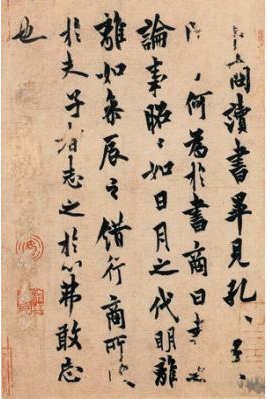 卜商讀書畢見孔、子、
何為於書商曰書之
論事昭、如日月之代明離
離如參辰之錯行商所受
於夫子者志之於心弗敢忘
也